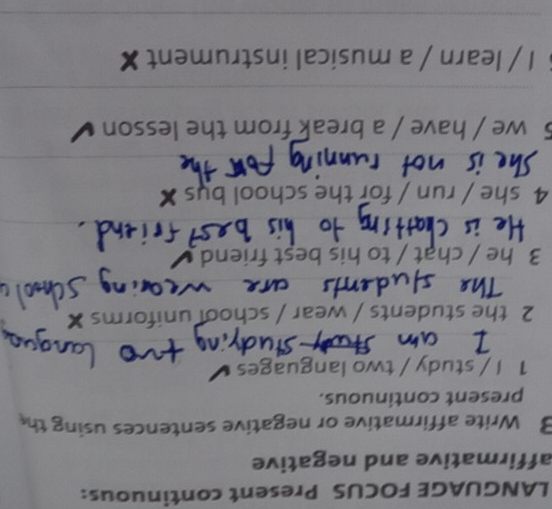 LANGUAGE FOCUS Present continuous:
affirmative and negative
3 Write affirmative or negative sentences using the
present continuous.
1 I / study / two languages ✓
I am studying two
2 the students / wear / school uniforms ✗
The students are wearing
3 he / chat / to his best friend ✓
He is chatting to his best friend.
4 she / run / for the school bus ✗
She is not running for the
5 we / have / a break from the lesson ✓
I / learn / a musical instrument ✗